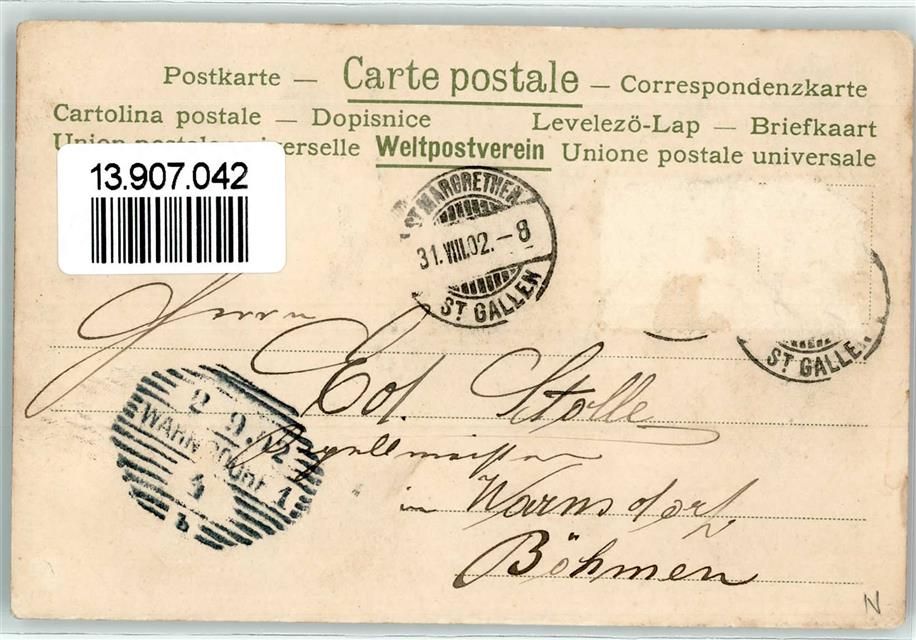 Postkarte — Carte postale — Correspondenzkarte
Cartolina postale — Dopisnice Levelezö-Lap — Briefkaart
Union postale universelle Weltpostverein Unione postale universale
13.907.042
ST MARGRETHEN
31.VIII.02.-8
ST GALLEN
ST GALLEN
Herrn
Stolle
2 9.02
WARNSDORF 1
4
b
in Warnsdorf
Böhmen
N